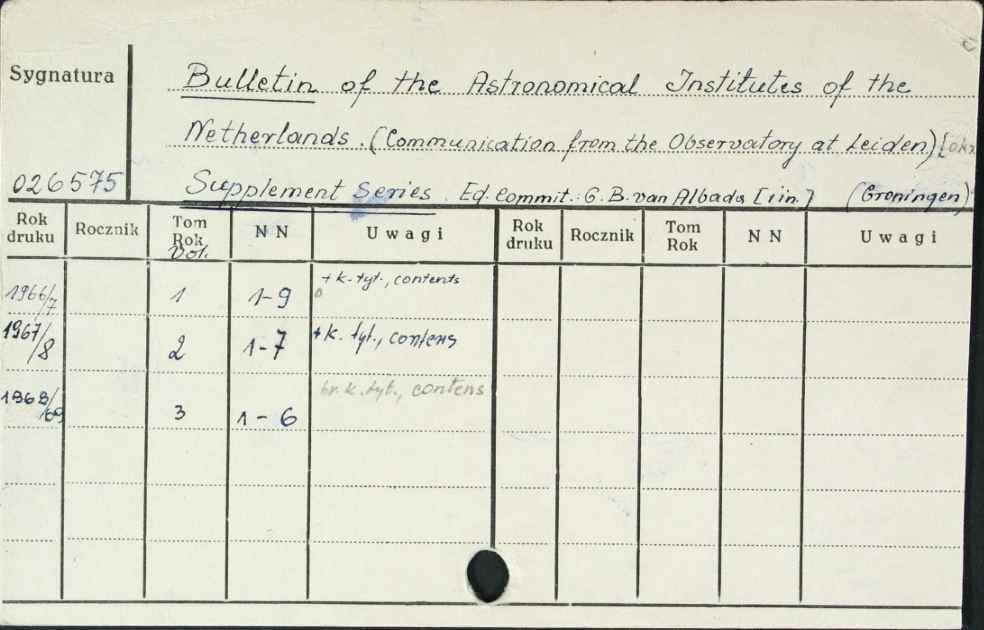 Sygnatura
026575
Bulletin of the Astronomical Institutes of the
Netherlands. (Communication from the Observatory at Leiden)
Supplement Series. Ed. Commit.: G. B. van Albada [iin.] (Groningen)
Rok druku Rocznik Tom Rok Vol. NN Uwagi Rok druku Rocznik Tom Rok NN Uwagi
1966/7 1 1-9 + k. tyt., contents
1967/8 2 1-7 + k. tyt., contens
1968/69 3 1-6 br. k. tyt., contens